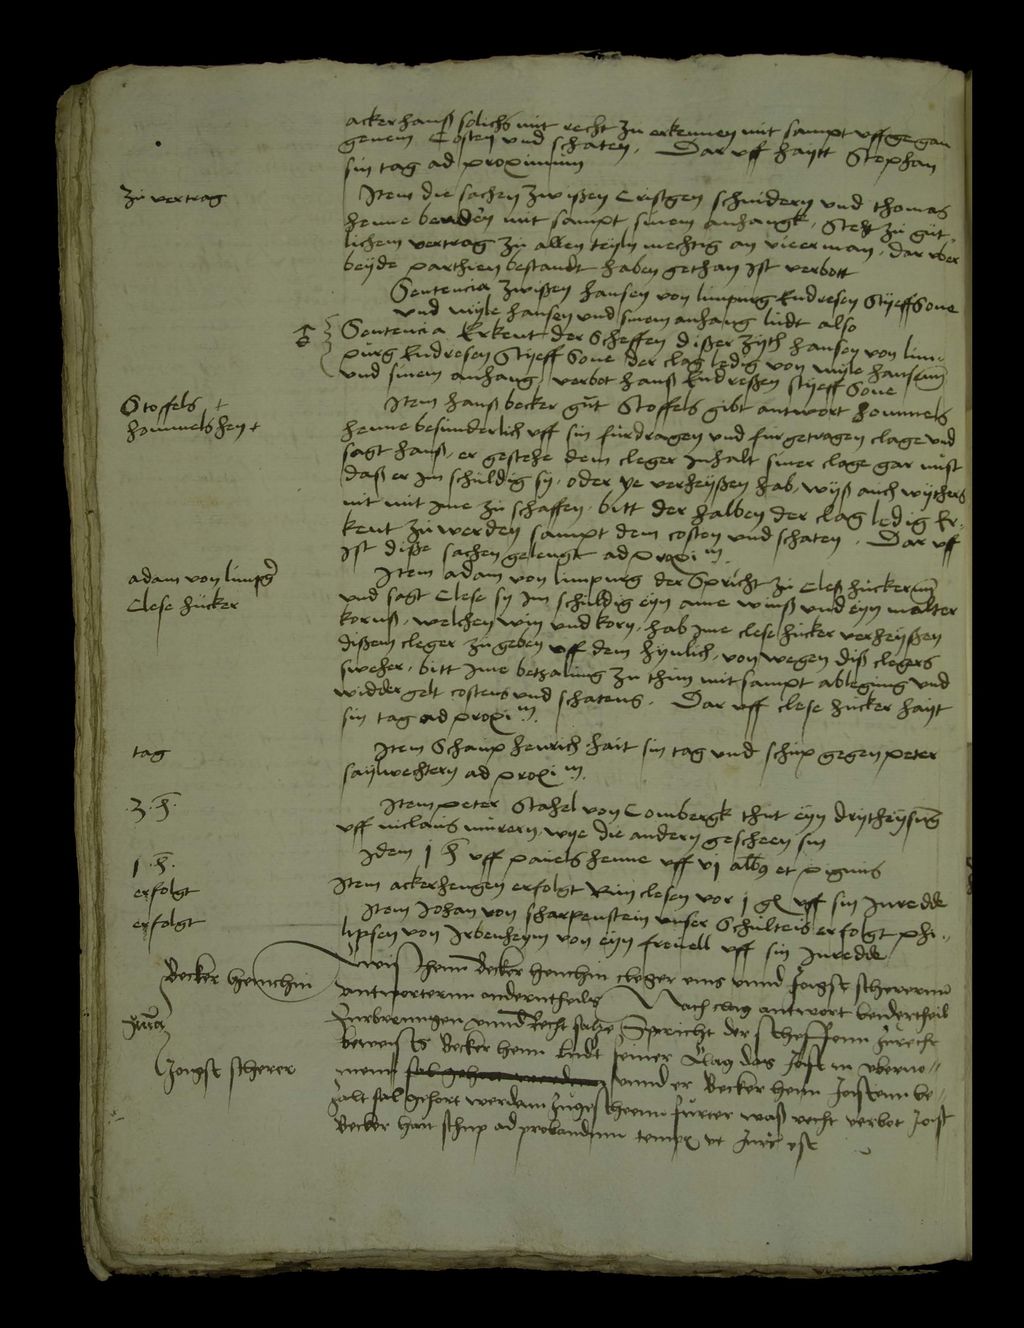 ackerhanß solichs mit recht zu erkennen mit sampt uffgegan
genem Costen und schaten. Dar uff haytt Stephan
sin tag ad proximum
zu vertrag
Item die sachen zwißen Cristgen schnidern und thomas
henne beyden mit sampt sinem anhangk, steht zu güt
lichem vertrag zu allen teyln mechtig an vieer man, dar uber
beyde parthien bestandt haben gethan Ist verbott
Sentencia zwißen hansen von limpurg Endresen StyeffSone
und wyle hansen und sinem anhang ludt also
Sentencia Erkent der Scheffen dißer zyth hansen von lim-
purg Endresen Styeff Sone der clag ledig von wyle hansenn
und sinem anhang, verbot hanß Endreßen styeff Sone
Stoffels +
hommelshen +
Item hanß becker gūt Stoffels gibt antwort hommels
henne besunderlich uff sin furdragen und furgetragen clage und
sagt hanß, er gestehe dem cleger Inhalt siner clage gar nust
daß er Im schuldig sy, oder ye verheyßen hab, wyß auch wythers
nit mit Ime zu schaffen, bitt der halben der clag ledig Er-
kent zu werden sampt dem costen und schaten. Dar uff
Ist diße sachen gelengt ad proxim
adam von limpg
Clese hücker
Item adam von limpurg der Spricht zu Cleß hückernn
und sagt Clese sy Im schuldig eyn ame winß und eyn malter
kornß, welchen win und korn, hab Ime clese hücker verheyßen
dißem cleger zu geben uff dem hynlich, von wegen diß clegers
sweher, bitt Ime betzalung zu thun mit sampt ablegung und
widdergelt costens und schatens. Dar uff clese hucker hayt
sin tag ad proxim
tag
Item Schaup henrich hait sin tag und schup gegen peter
saylwechtern ad proxim
3 h
Item peter Stahel von Combergk thut eyn drytheysung
uff niclaus murern, wye die andern gescheen sin
1 h
Idem 1 h uff pauels henne uff vj albus et pignus
erfolgt
Item ackerhengen erfolgt Kimclesen vor 1 gl uff sin Inredde
erfolgt
Item Johan von scharpenstein unser Schulteis erfolgt phi-
lipsen von Irbenheym von eyn frevell uff sin Inredde
Becker henchin
Zwischenn Becker henchin cleger eins unnd Jongst schererenn
antworternn anderntheils Nach clag antwort beidertheil
Jura
furbrenngen unnd Recht satze Spricht der scheffenn zurecht
beweis es Becker henn Ludt seiner Clag das Jost in uberno-
Jongst scherer
menn unnd er Becker henn Jostenn be-
zalt sal gehort werdenn zugescheenn furter was recht verbot Jost
Becker hait schup ad probandum tempore ut Juris est